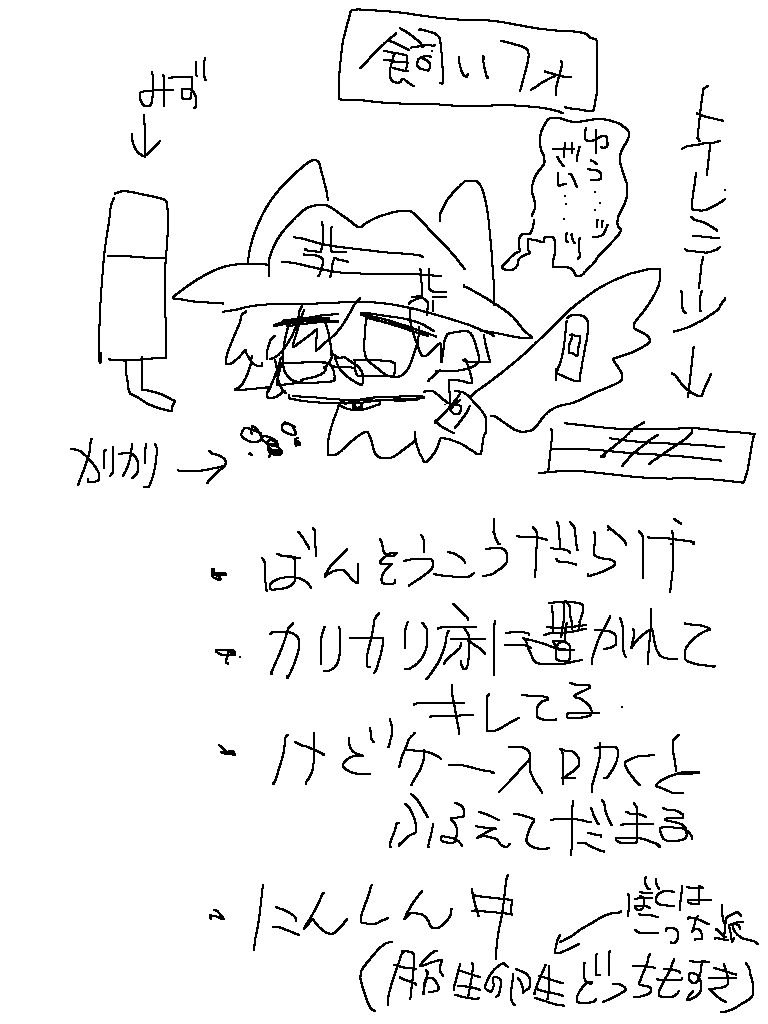 飼いフォ
みず
トイレシーツ
カリカリ
・ばんそうこうだらけ
・カリカリ床に置かれて
キレてる
・けどケース叩くと
ふるえてだまる
・にんしん中
こっち派
(胎生卵生どっちもすき)